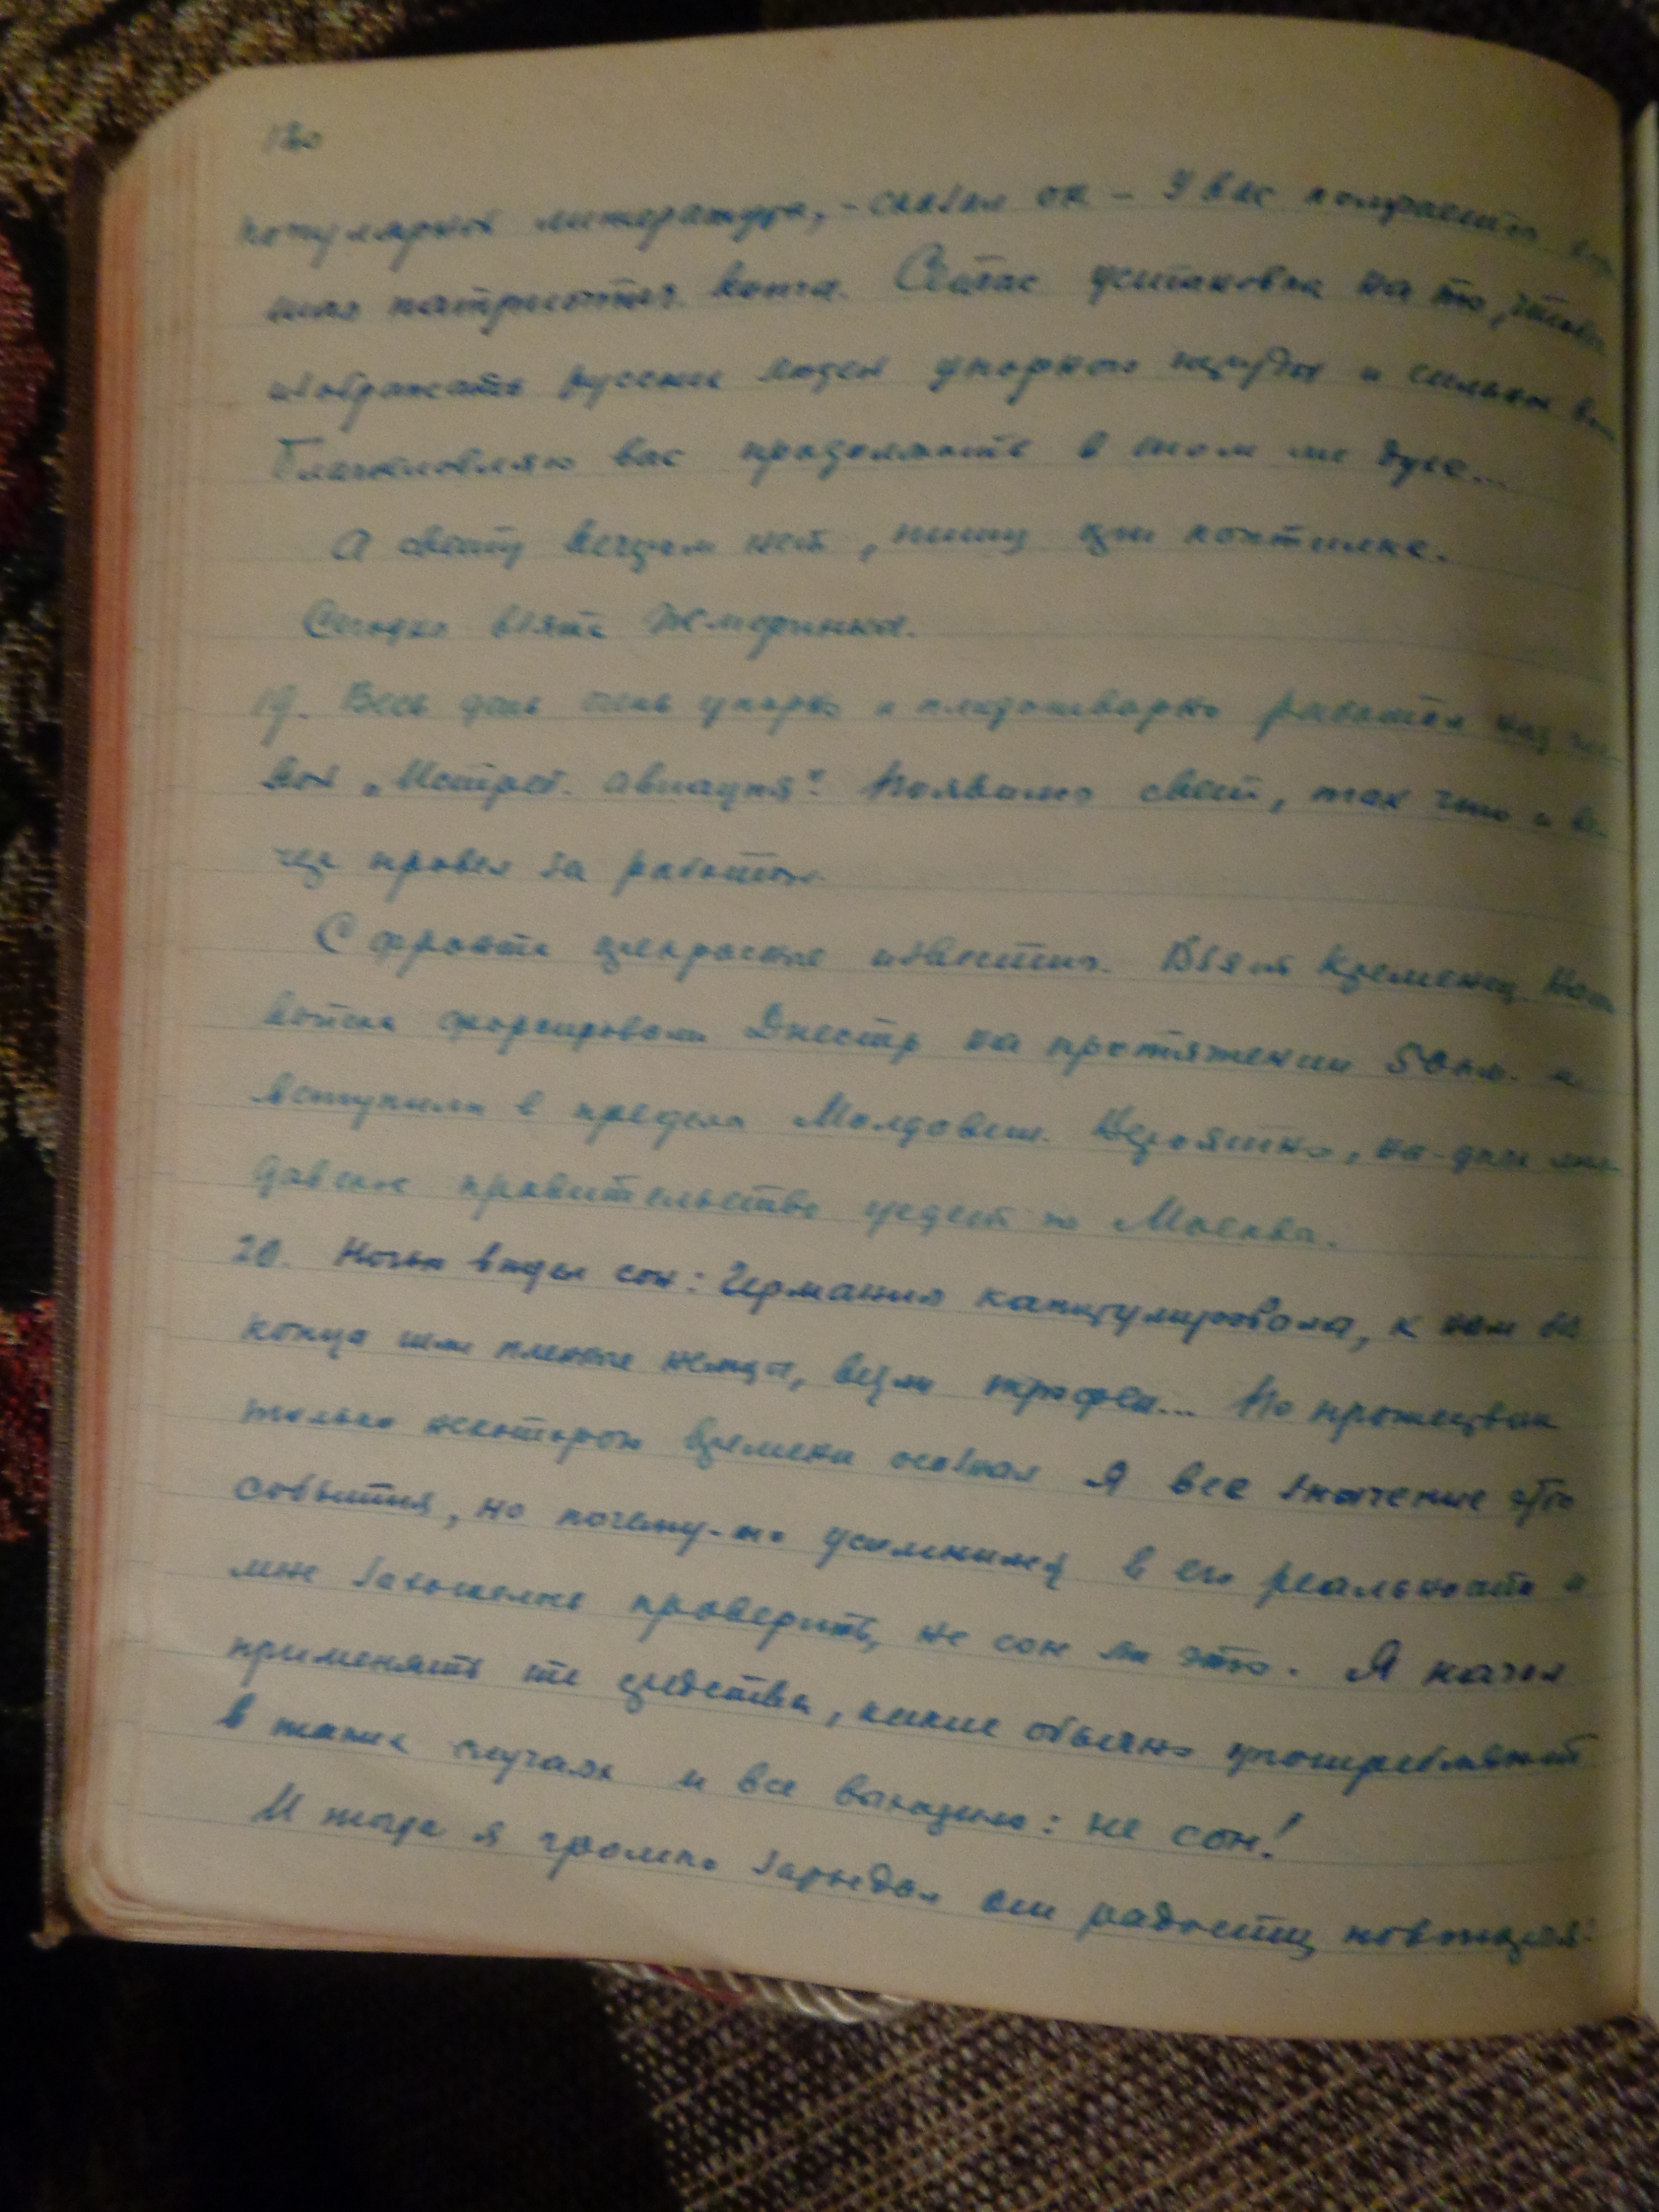 популярной литературы, - сказал он - У вас получается
патриотич. книга. Сейчас установка на то, чтобы
изображать русских людей упорного труда и сильной
Благословляю вас продолжать в том же духе...
А свету вечером нет, пишу при коптилке.
Сегодня взята Жмеринка.
19. Весь день очень упорно и плодотворно работал над
вой „Истреб. авиация". Появился свет, так что и ве-
чер провел за работой.
С фронта прекрасные известия. Взят Кременец. Наши
войска форсировали Днестр на протяжении 50 км. и
вступили в пределы Молдавии. Вероятно, на-днях мол-
давское правительство уедет из Москвы.
20. Ночью видел сон: Германия капитулировала, к нам
конца шли пленные немцы, везли трофеи... По прошествии
только некоторого времени осознал я все значение этого
события, но почему-то усомнился в его реальности и
мне захотелось проверить, не сон ли это. Я начал
применять те средства, какие обычно употребляют
в таких случаях и все говорило: не сон!
И тогда я громко зарыдал от радости, повторяя: